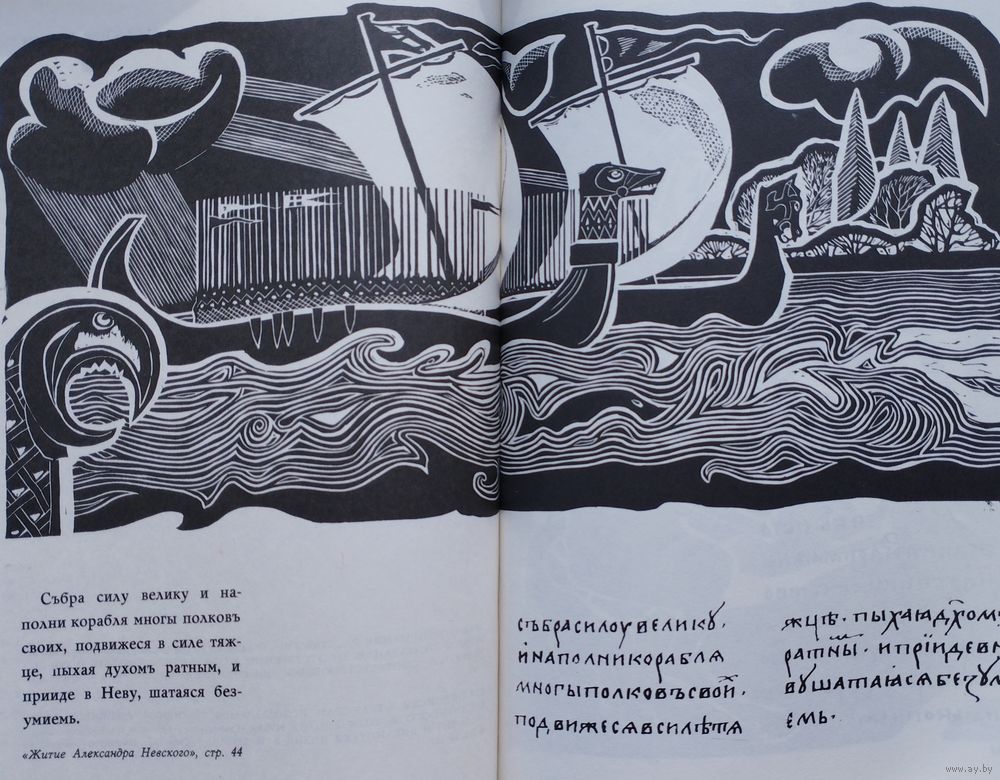 Събра силу велику и на-
полни корабля многы полковъ
своих, подвижеся в силе тяж-
це, пыхая духомъ ратным, и
прииде в Неву, шатаяся без-
умиемь.
«Житие Александра Невского», стр. 44
събрасилоувелику.
інаполникорабля
многыполковъсвой.
подвижесѧвсилѣтѧ
жцѣ. пыхаꙗдхому
ратны. иприідевн
вушатаꙗсѧбезул
емь.
www.ay.by